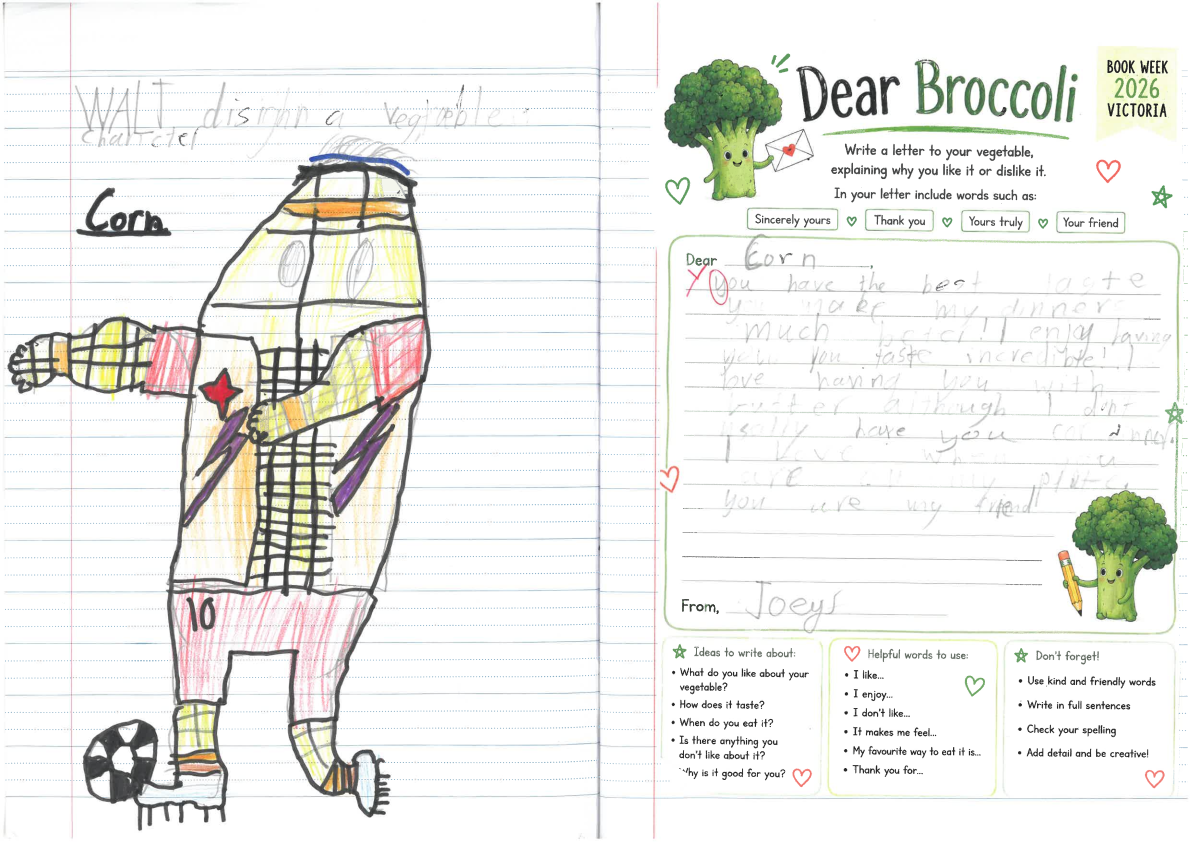 WALT disighn a vegitable
charicter
Corn
10
Dear Broccoli
BOOK WEEK
2026
VICTORIA
Write a letter to your vegetable,
explaining why you like it or dislike it.
In your letter include words such as:
Sincerely yours
Thank you
Yours truly
Your friend
Dear Corn,
You have the best taste
you make my dinners
much better! I enjoy having
you you taste incredible! I
love having you with
butter although I dont
usally have you for dinner.
I love when you
are on my plate
you are my friend!
From, Joeys
Ideas to write about:
• What do you like about your
vegetable?
• How does it taste?
• When do you eat it?
• Is there anything you
don't like about it?
Why is it good for you?
Helpful words to use:
• I like...
• I enjoy...
• I don't like...
• It makes me feel...
• My favourite way to eat it is...
• Thank you for...
Don't forget!
• Use kind and friendly words
• Write in full sentences
• Check your spelling
• Add detail and be creative!